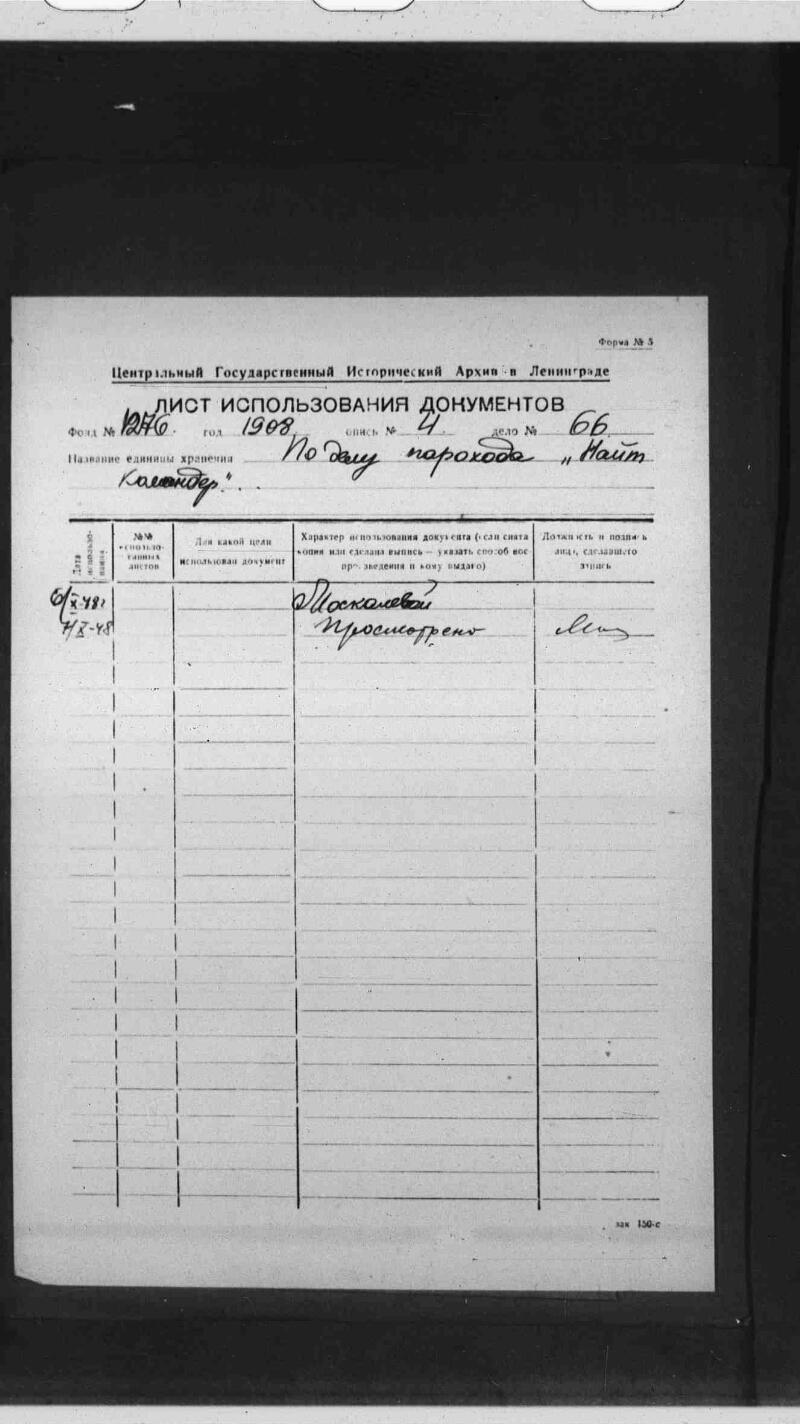 Форма № 5
Центральный Государственный Исторический Архив в Ленинграде
ЛИСТ ИСПОЛЬЗОВАНИЯ ДОКУМЕНТОВ
Фонд № 1276. год 1908 опись № 4 дело № 66
Название единицы хранения По делу парохода „Найт
Командер".
Дата использования
№№ использованных листов
Для какой цели использован документ
Характер использования документа (если снята
копия или сделана выпись — указать способ вос-
произведения и кому выдано)
Должность и подпись
лица, сделавшего
запись
6/X-48 Москалевой
7/X-48 Просмотрено
зак 150-с